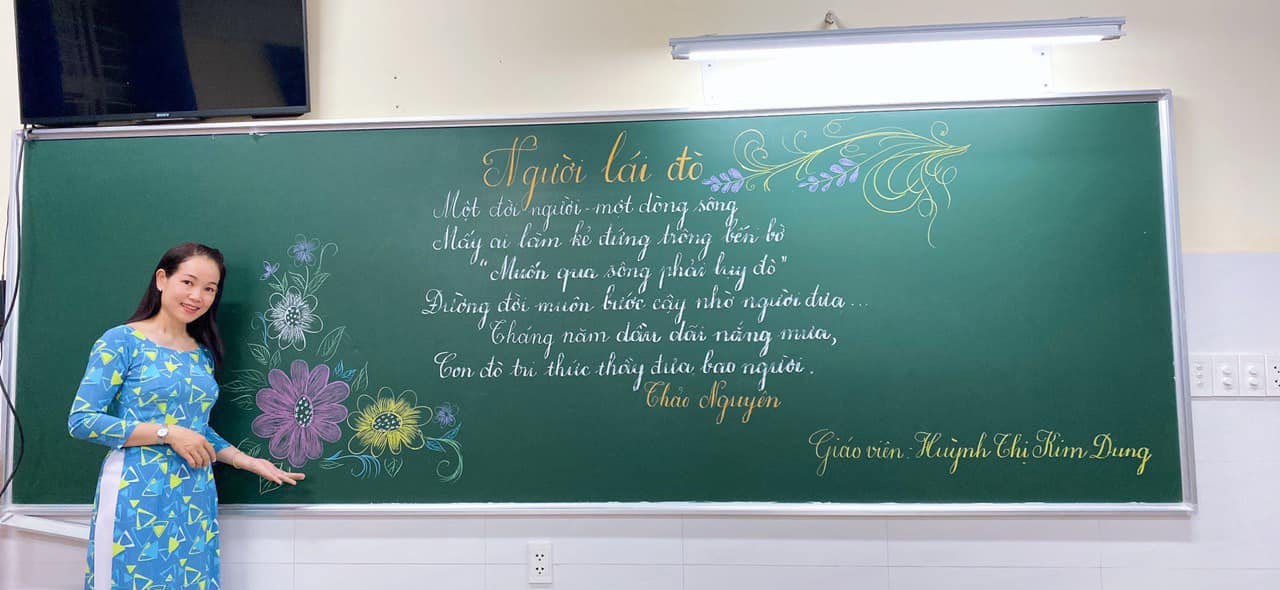 SONY
Người lái đò
Một đời người - một dòng sông
Mấy ai làm kẻ đứng trông bến bờ
"Muốn qua sông phải lụy đò"
Đường đời muôn bước cậy nhờ người đưa...
Tháng năm dầu dãi nắng mưa,
Con đò tri thức thầy đưa bao người.
Thảo Nguyên
Giáo viên: Huỳnh Thị Kim Dung